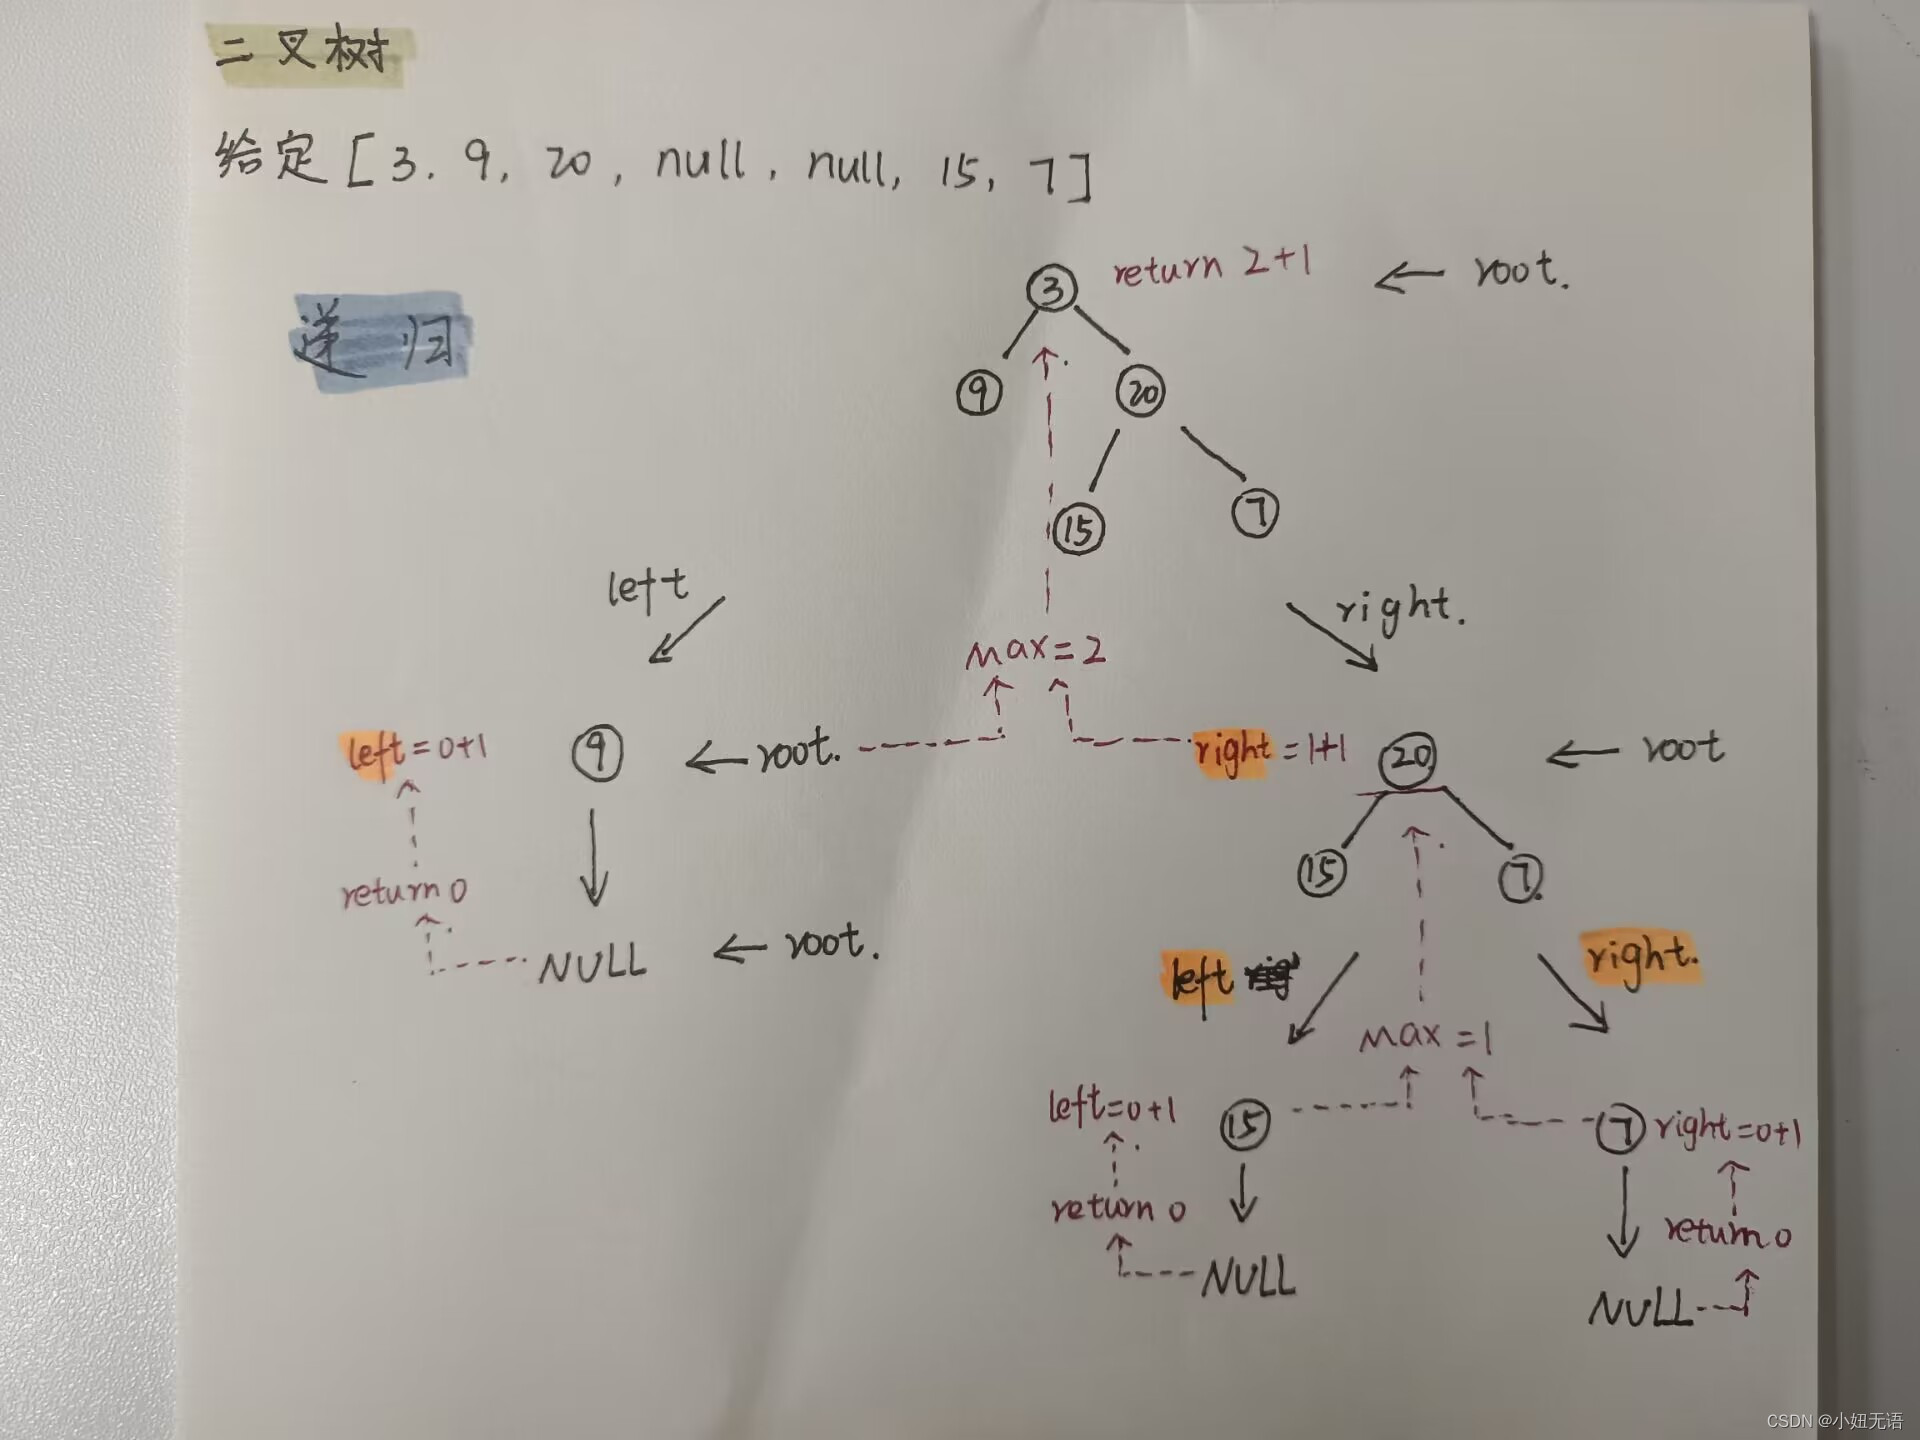 二叉树
给定 [3, 9, 20, null, null, 15, 7]
3 return 2+1 ← root.
递归
9 20
15 7
left right.
max=2
left=0+1 9 ← root. right=1+1 20 ← root
15 7.
return 0
NULL ← root. left right.
max=1
left=0+1 15 7 right=0+1
return 0 return 0
NULL NULL
CSDN @小妞无语